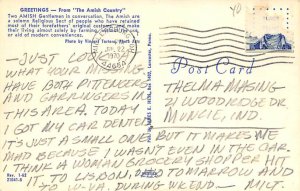 GREETINGS — From "The Amish Country"
Two AMISH Gentlemen in conversation. The Amish are
a solemn Religious Sect of people who have retained
most of their forefathers' original customs
their living almost solely by farming without the use
or aid of modern conveniences.
Photo by Vincent Tortora
Post Card
JUST LOOK
WHAT YOUR MISSING
HAVE BOTH
AND
THIS AREA. TODAY
GOT MY CAR DENTED
IT'S JUST A SMALL ONE BUT IT MAKES ME
MAD BECAUSE I WASN'T EVEN IN THE CAR.
A WOMAN GROCERY SHOPPER HIT
IT. TO LISBON, TOMORROW AND
TO W-VA. DURING WKEND — MILT
THELMA MASING
21 WOODRIDGE DR
MUNCIE, IND.